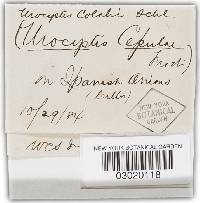 Urocystis Colchici Schl.
(Urocystis Cepulae
Frost)
on Spanish Onions
(bulbs)
10/29/04
NEW YORK
BOTANICAL
GARDEN
NEW YORK BOTANICAL GARDEN
03020118